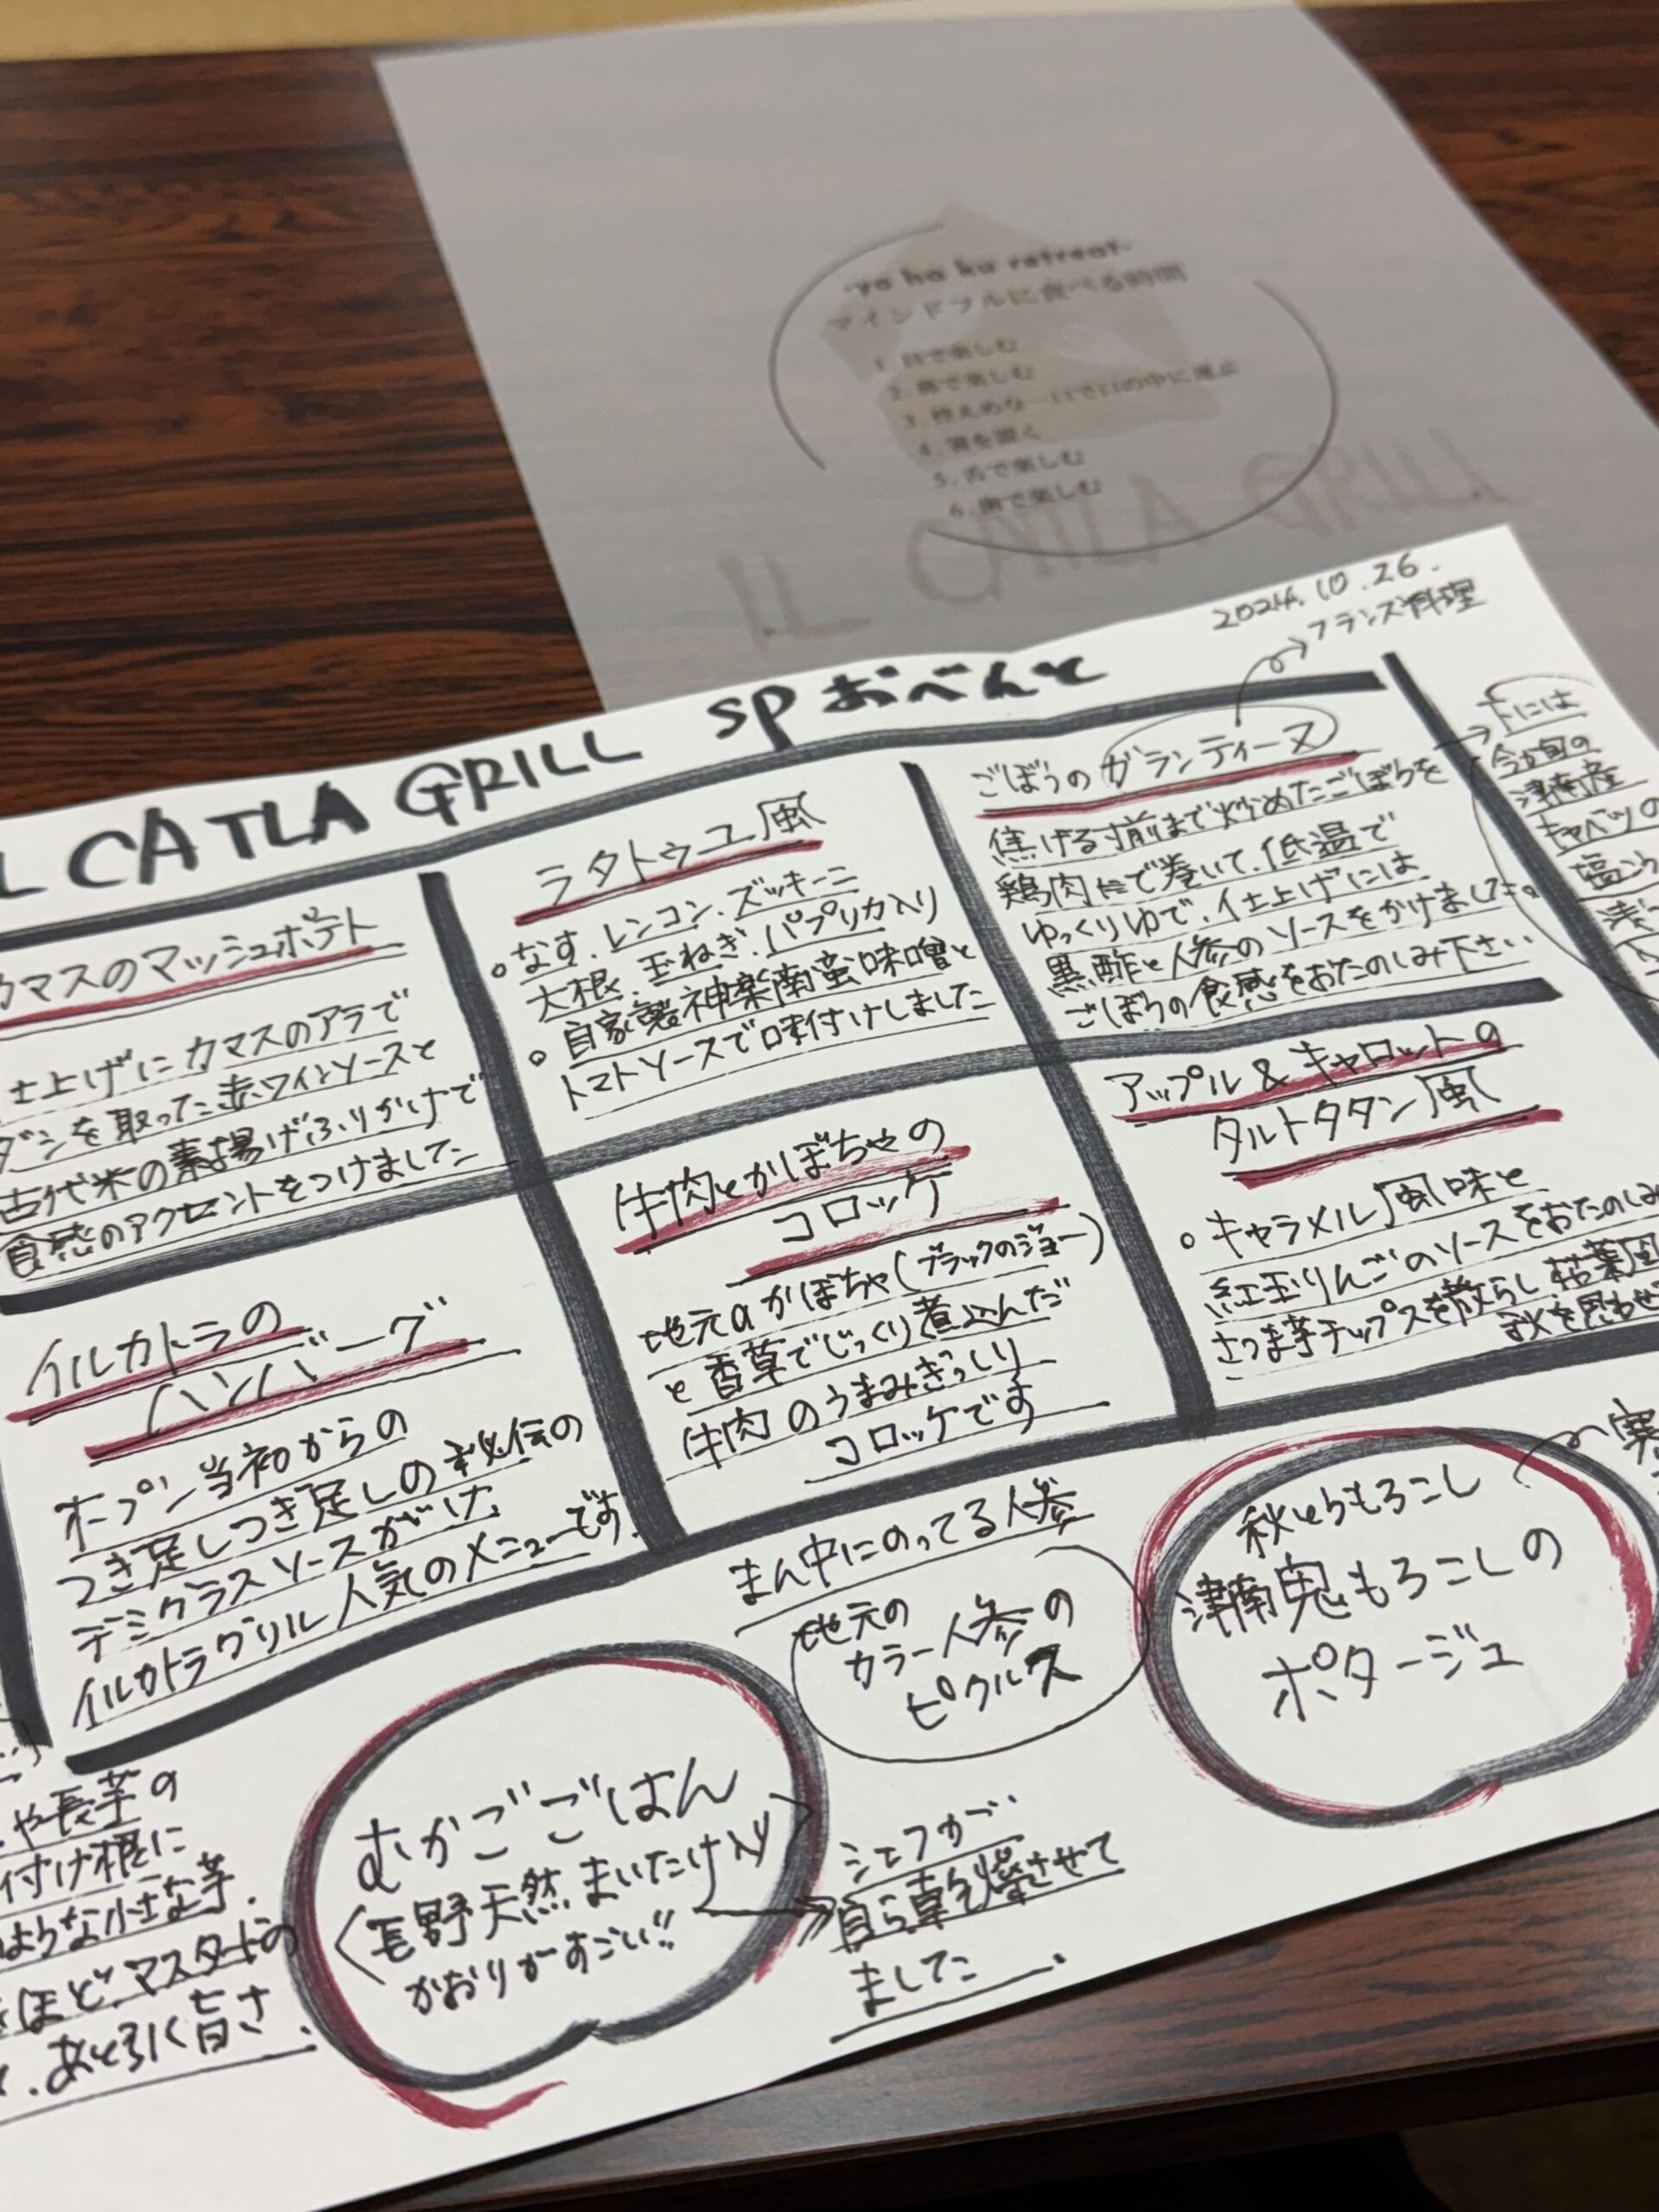 -yo ha ku retreat-
マインドフルに食べる時間
1. 目で楽しむ
2. 鼻で楽しむ
3. 控えめな一口で口の中に運ぶ
4. 箸を置く
5. 舌で楽しむ
6. 歯で楽しむ
2024.10.26.
フランス料理
L CATLA GRILL SPおべんと
カマスのマッシュポテト
仕上げにカマスのアラで
ダシを取った赤ワインソースと
古代米の素揚げふりかけで
食感のアクセントをつけました
ラタトゥユ風
なす.レンコン.ズッキーニ
大根.玉ねぎ.パプリカ入り
自家製神楽南蛮味噌と
トマトソースで味付けしました
ごぼうのガランティーヌ
焦げる寸前まで炒めたごぼうを
鶏肉で巻いて.低温で
ゆっくりゆで.仕上げには
黒酢と人参のソースをかけました。
ごぼうの食感をおたのしみ下さい
下には
今が旬の
津南産
キャベツの
塩
イルカトラの
ハンバーグ
オープン当初からの
つき足しつき足しの秘伝の
デミグラスソースがけ.
イルカトラグリル人気のメニューです.
牛肉とかぼちゃの
コロッケ
地元のかぼちゃ(ブラックのジョー)
と香草でじっくり煮込んだ
牛肉のうまみぎっしり
コロッケです
アップル&キャロットの
タルトタタン風
キャラメル風味と
紅玉りんごのソースをおたのしみ
さつま芋チップスを散らし.枯葉風
秋を思わせ
や長芋の
付け根に
ような小さな芋.
ほど.マスタードの
.あと引く旨さ.
むかごごはん
(長野天然まいたけ入り
かおりがすごい!!
シェフが
自ら乾燥させて
ました.
まん中にのってる人参
地元の
カラー人参の
ピクルス
秋とうもろこし
津南鬼もろこしの
ポタージュ
寒